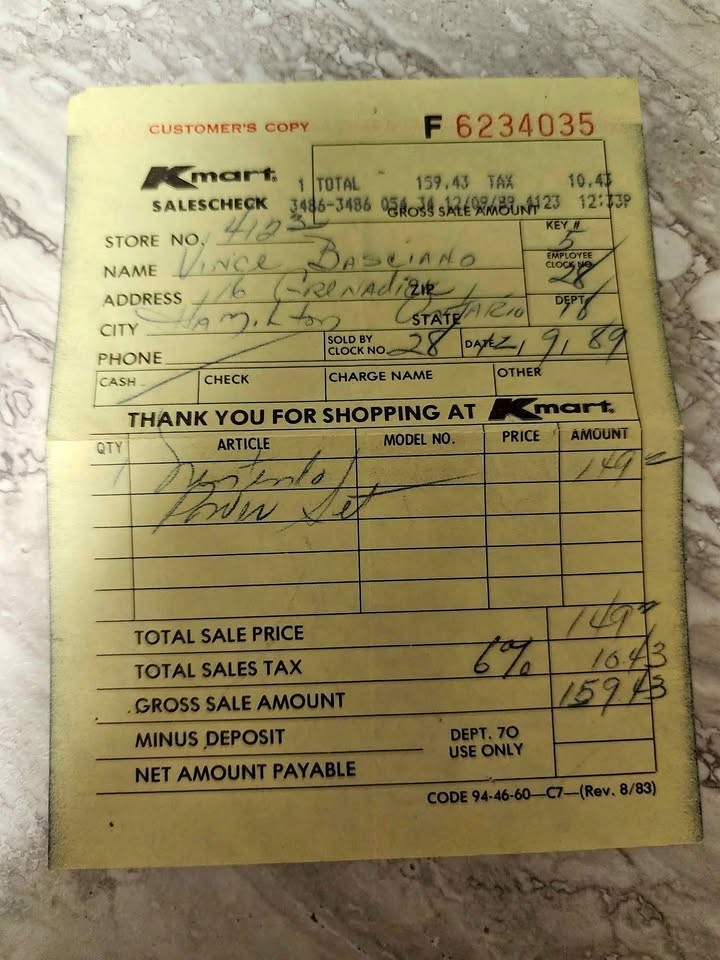 CUSTOMER'S COPY F 6234035
Kmart
SALESCHECK
1 TOTAL 159.43 TAX 10.43
3486-3486 12/09/89 4123 12:33P
GROSS SALE AMOUNT
STORE NO. 4123 KEY # 5
NAME Vince Basciano EMPLOYEE CLOCK NO. 28
ADDRESS 16 ZIP DEPT.
CITY Hamilton Ontario STATE
PHONE SOLD BY CLOCK NO. 28 DATE 12, 9, 89
CASH CHECK CHARGE NAME OTHER
THANK YOU FOR SHOPPING AT Kmart
QTY ARTICLE MODEL NO. PRICE AMOUNT
1 Nintendo 149
Power Set
TOTAL SALE PRICE 149
TOTAL SALES TAX 6% 10.43
GROSS SALE AMOUNT 159 43
MINUS DEPOSIT DEPT. 70 USE ONLY
NET AMOUNT PAYABLE
CODE 94-46-60—C7—(Rev. 8/83)